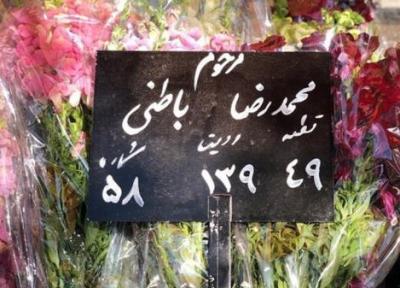 مرحوم
محمدرضا باطنی
قطعه ردیف شماره
۴۹ ۱۳۹ ۵۸